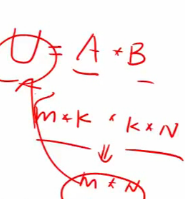 U = A * B
m * K * K * N
m * N